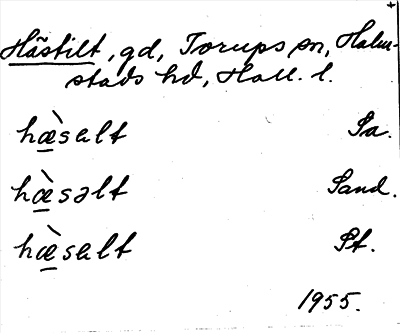 Hästilt, gd, Torups sn, Halm-
stads hd, Hall. l.
hæ̀sɐlt Sa.
hæ̀səlt Sand.
hæ̀sɐlt St.
1955.